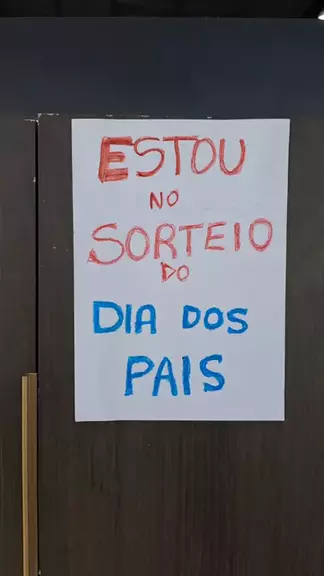 ESTOU
NO
SORTEIO
DO
DIA DOS
PAIS